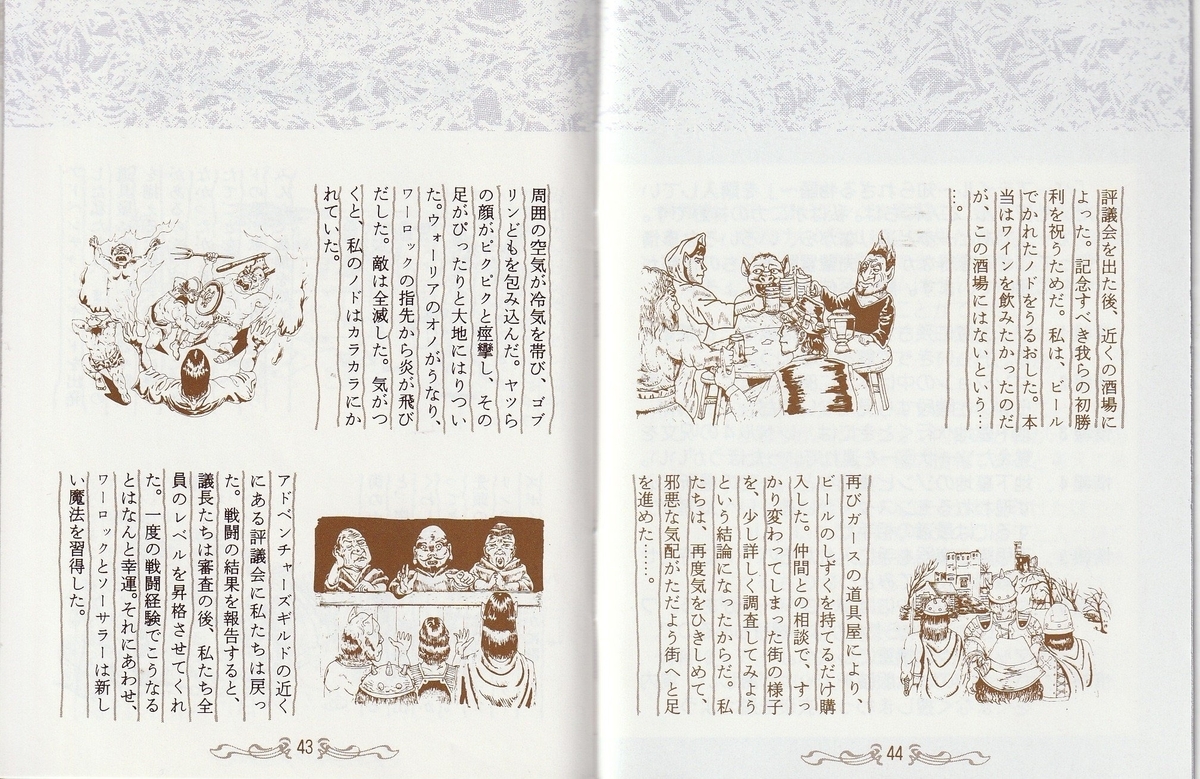 周囲の空気が冷気を帯び、ゴブ
リンどもを包み込んだ。ヤツら
の顔がピクピクと痙攣し、その
足がぴったりと大地にはりつい
た。ウォーリアのオノがうなり、
ワーロックの指先から炎が飛び
だした。敵は全滅した。気がつ
くと、私のノドはカラカラにか
れていた。
アドベンチャーズギルドの近く
にある評議会に私たちは戻っ
た。戦闘の結果を報告すると、
議長たちは審査の後、私たち全
員のレベルを昇格させてくれ
た。一度の戦闘経験でこうなる
とはなんと幸運。それにあわせ、
ワーロックとソーサラーは新し
い魔法を習得した。
43
評議会を出た後、近くの酒場に
よった。記念すべき我らの初勝
利を祝うためだ。私は、ビール
でかれたノドをうるおした。本
当はワインを飲みたかったのだ
が、この酒場にはないという…
…。
再びガースの道具屋により、
ビールのしずくを持てるだけ購
入した。仲間との相談で、すっ
かり変わってしまった街の様子
を、少し詳しく調査してみよう
という結論になったからだ。私
たちは、再度気をひきしめて、
邪悪な気配がただよう街へと足
を進めた……。
44